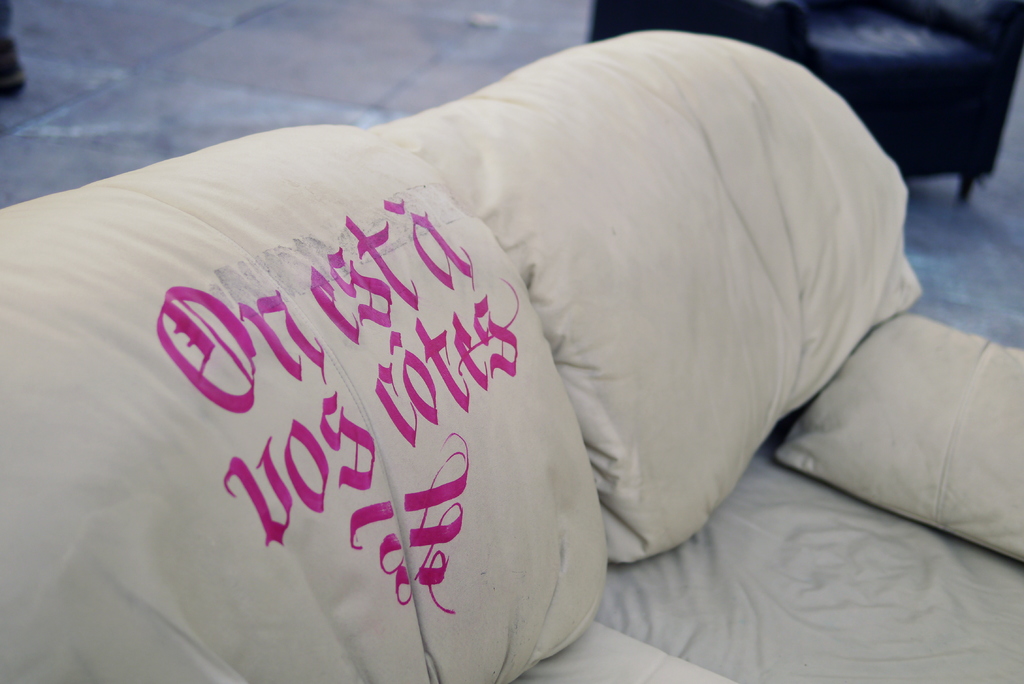 On est à
vos côtes